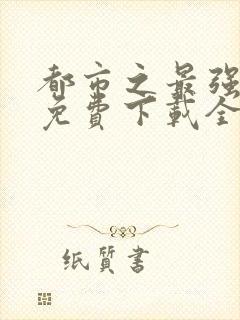 都市之最强
免费下载全
纸质书